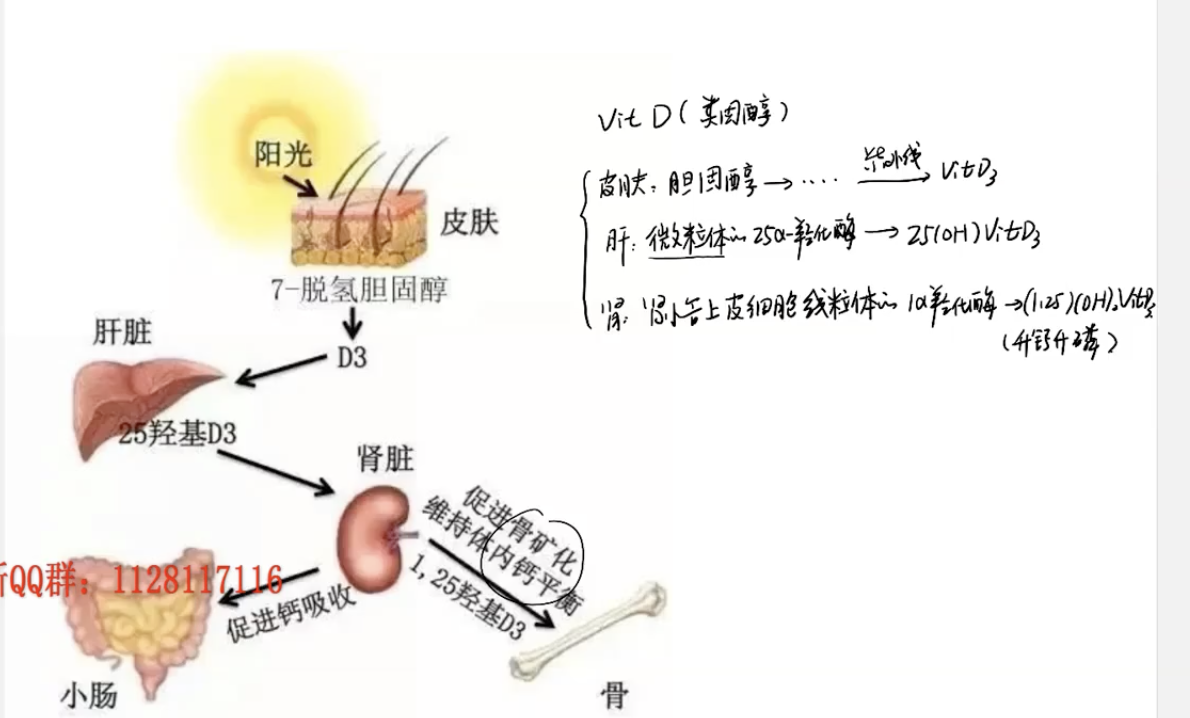 阳光
皮肤
7-脱氢胆固醇
D3
肝脏
25羟基D3
肾脏
促进骨矿化
维持体内钙平衡
1,25羟基D3
促进钙吸收
小肠
骨
QQ群：1128117116
Vit D（类固醇）
皮肤：胆固醇→‥‥ 紫外线→ VitD₃
肝：微粒体的25α-羟化酶→25(OH)VitD₃
肾：肾小管上皮细胞线粒体的1α羟化酶→(1.25)(OH)₂VitD₃
（升钙升磷）